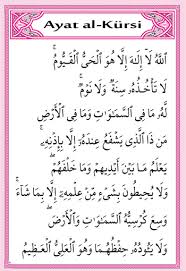 Ayat al-Kürsi
اَللّٰهُ لَآ اِلٰهَ اِلَّا هُوَ الْحَيُّ الْقَيُّومُ ۚ
لَا تَأْخُذُهُ سِنَةٌ وَلَا نَوْمٌ ۚ
لَهُ مَا فِي السَّمٰوَاتِ وَمَا فِي الْأَرْضِ
مَن ذَا الَّذِي يَشْفَعُ عِنْدَهُ إِلَّا بِإِذْنِهِ ۚ
يَعْلَمُ مَا بَيْنَ أَيْدِيهِمْ وَمَا خَلْفَهُمْ ۚ
وَلَا يُحِيطُونَ بِشَيْءٍ مِّنْ عِلْمِهِ إِلَّا بِمَا شَآءَ ۚ
وَسِعَ كُرْسِيُّهُ السَّمٰوَاتِ وَالْأَرْضَ ۚ
وَلَا يَئُودُهُ حِفْظُهُمَا وَهُوَ الْعَلِيُّ الْعَظِيمُ